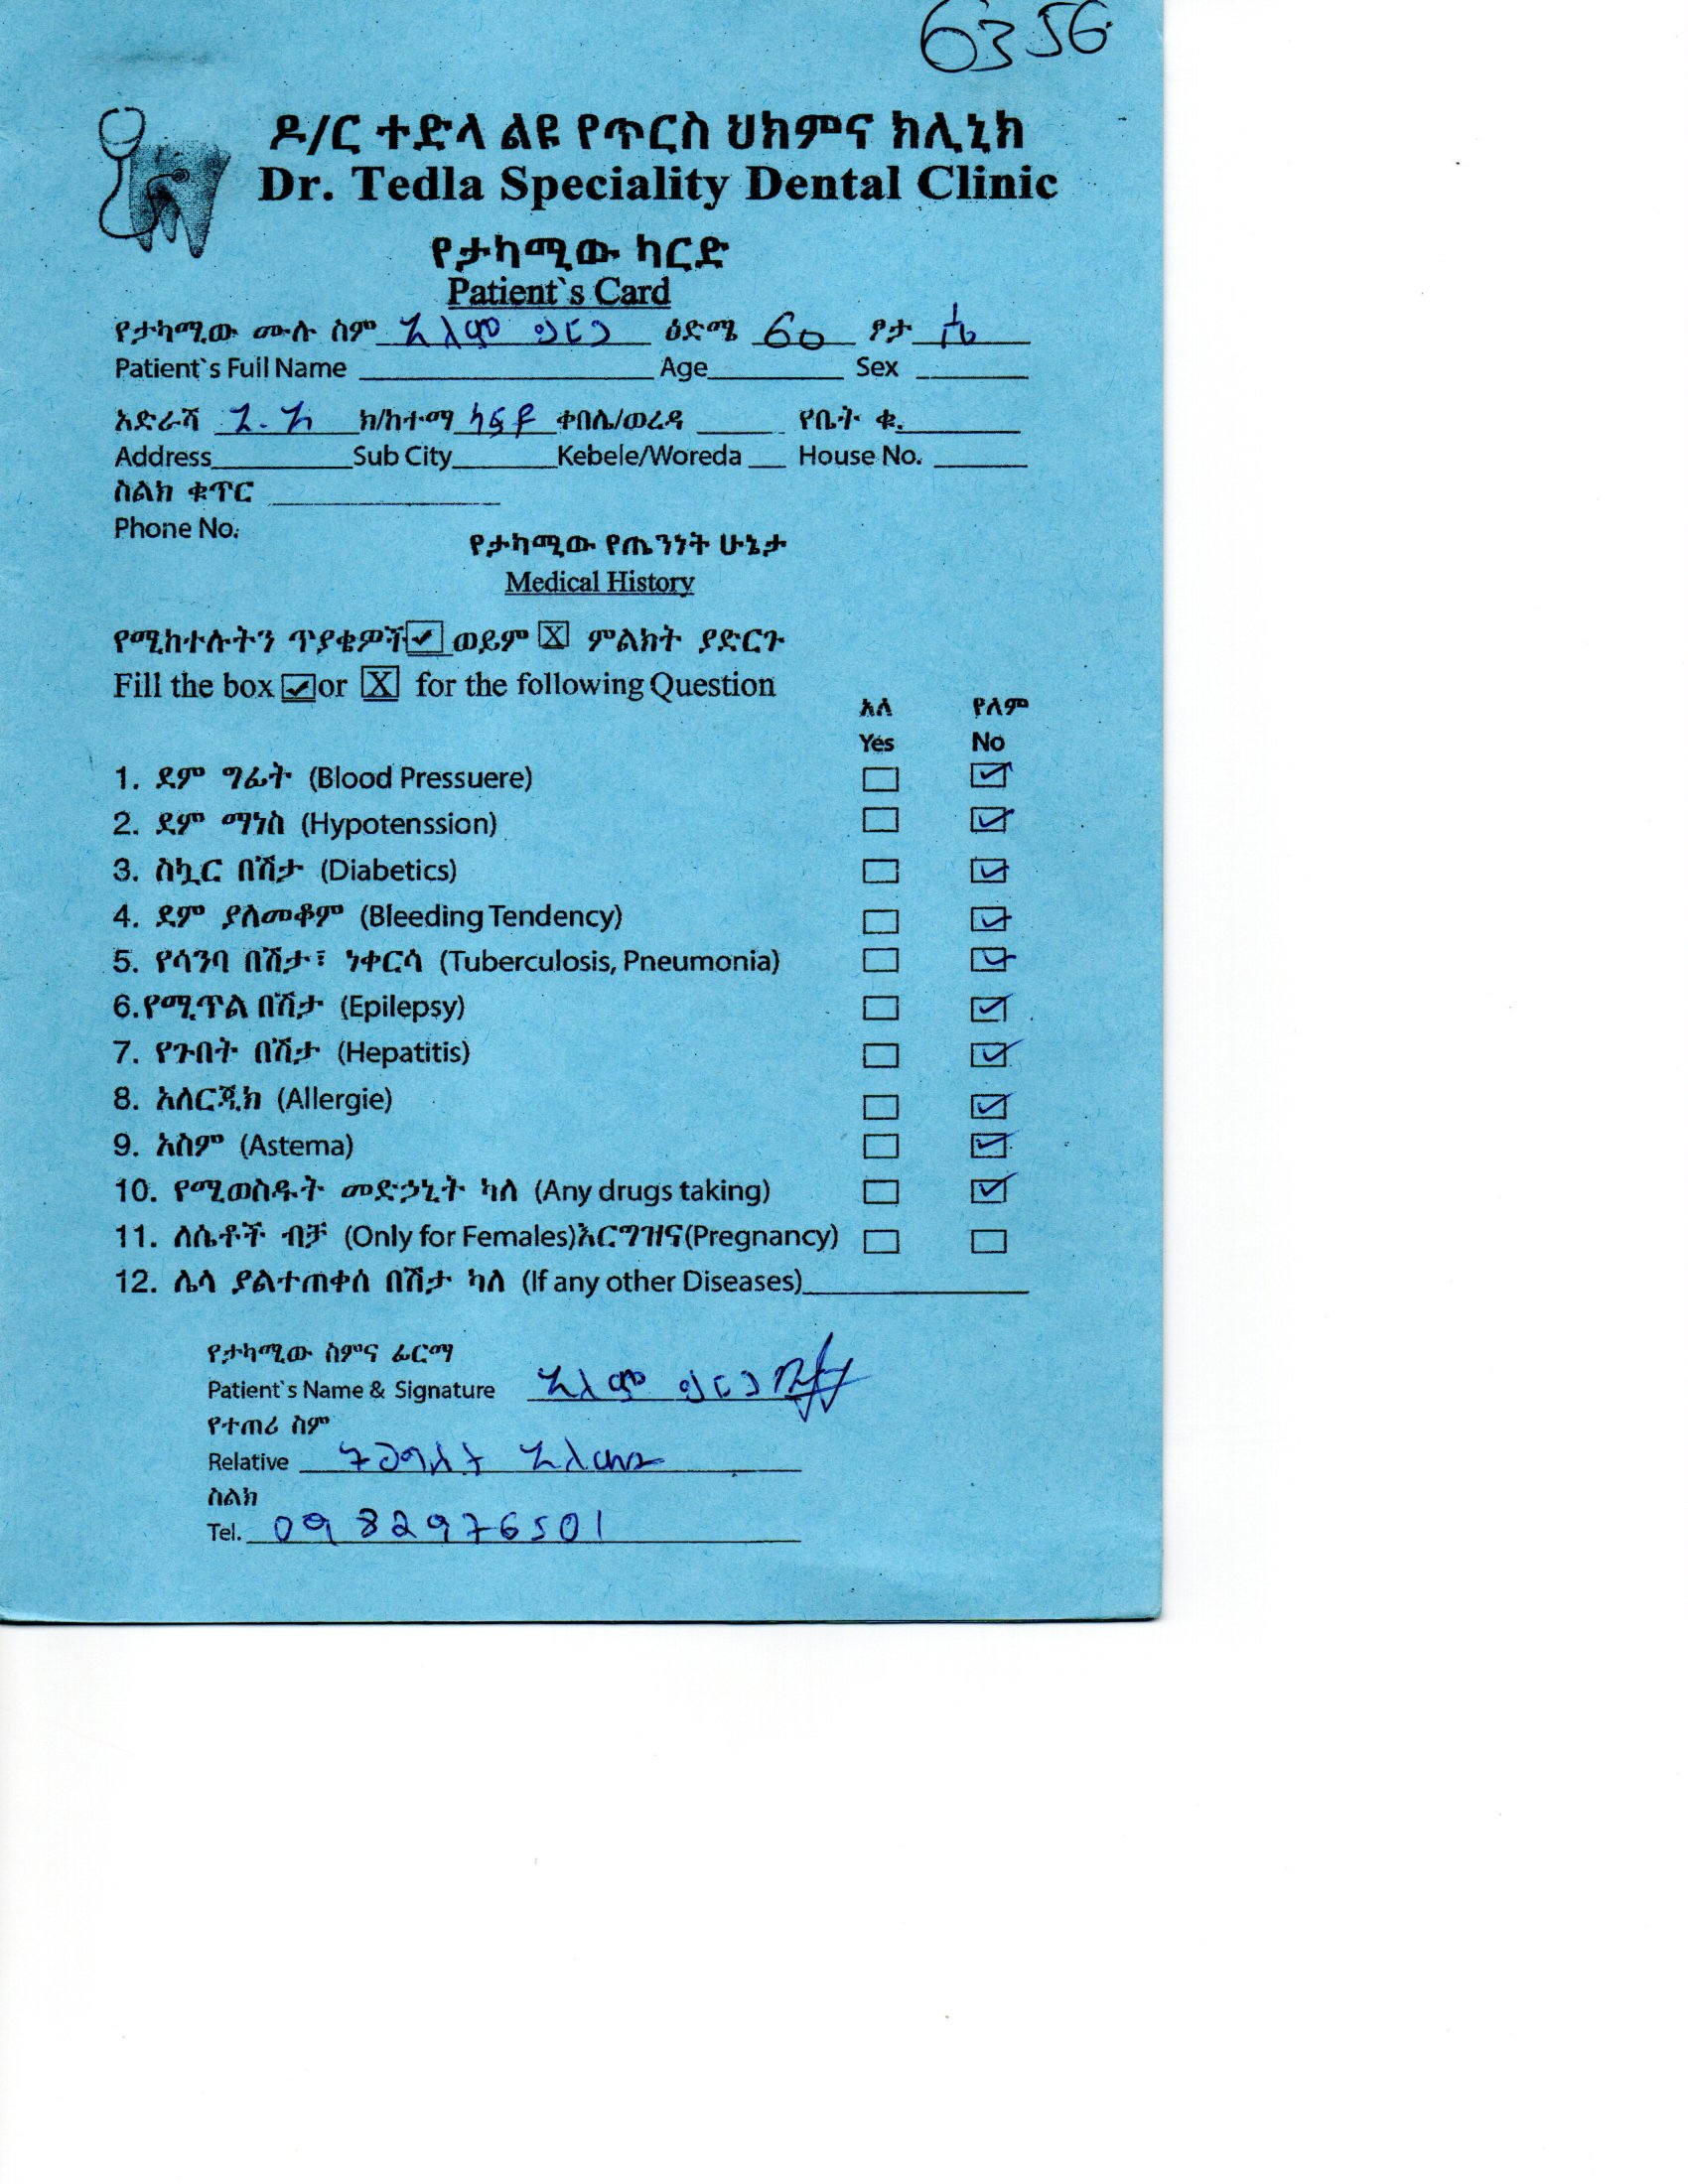 6356
ዶ/ር ተድላ ልዩ የጥርስ ህክምና ክሊኒክ
Dr. Tedla Speciality Dental Clinic
የታካሚው ካርድ
Patient`s Card
የታካሚው ሙሉ ስም ዕድሜ 60 ፆታ ሴ
Patient`s Full Name Age Sex
አድራሻ አ.አ ክ/ከተማ ቀበሌ/ወረዳ የቤት ቁ.
Address Sub City Kebele/Woreda House No.
ስልክ ቁጥር
Phone No.
የታካሚው የጤንነት ሁኔታ
Medical History
የሚከተሉትን ጥያቄዎች ✓ ወይም X ምልክት ያድርጉ
Fill the box ✓ or X for the following Question
አለ የለም
Yes No
1. ደም ግፊት (Blood Pressuere) ☐ ☑
2. ደም ማነስ (Hypotenssion) ☐ ☑
3. ስኳር በሽታ (Diabetics) ☐ ☑
4. ደም ያለመቆም (Bleeding Tendency) ☐ ☑
5. የሳንባ በሽታ፣ ነቀርሳ (Tuberculosis, Pneumonia) ☐ ☑
6.የሚጥል በሽታ (Epilepsy) ☐ ☑
7. የጉበት በሽታ (Hepatitis) ☐ ☑
8. አለርጂክ (Allergie) ☐ ☑
9. አስም (Astema) ☐ ☑
10. የሚወስዱት መድኃኒት ካለ (Any drugs taking) ☐ ☑
11. ለሴቶች ብቻ (Only for Females)እርግዝና(Pregnancy) ☐ ☐
12. ሌላ ያልተጠቀሰ በሽታ ካለ (If any other Diseases)
የታካሚው ስምና ፊርማ
Patient`s Name & Signature
የተጠሪ ስም
Relative
ስልክ
Tel. 0982976501